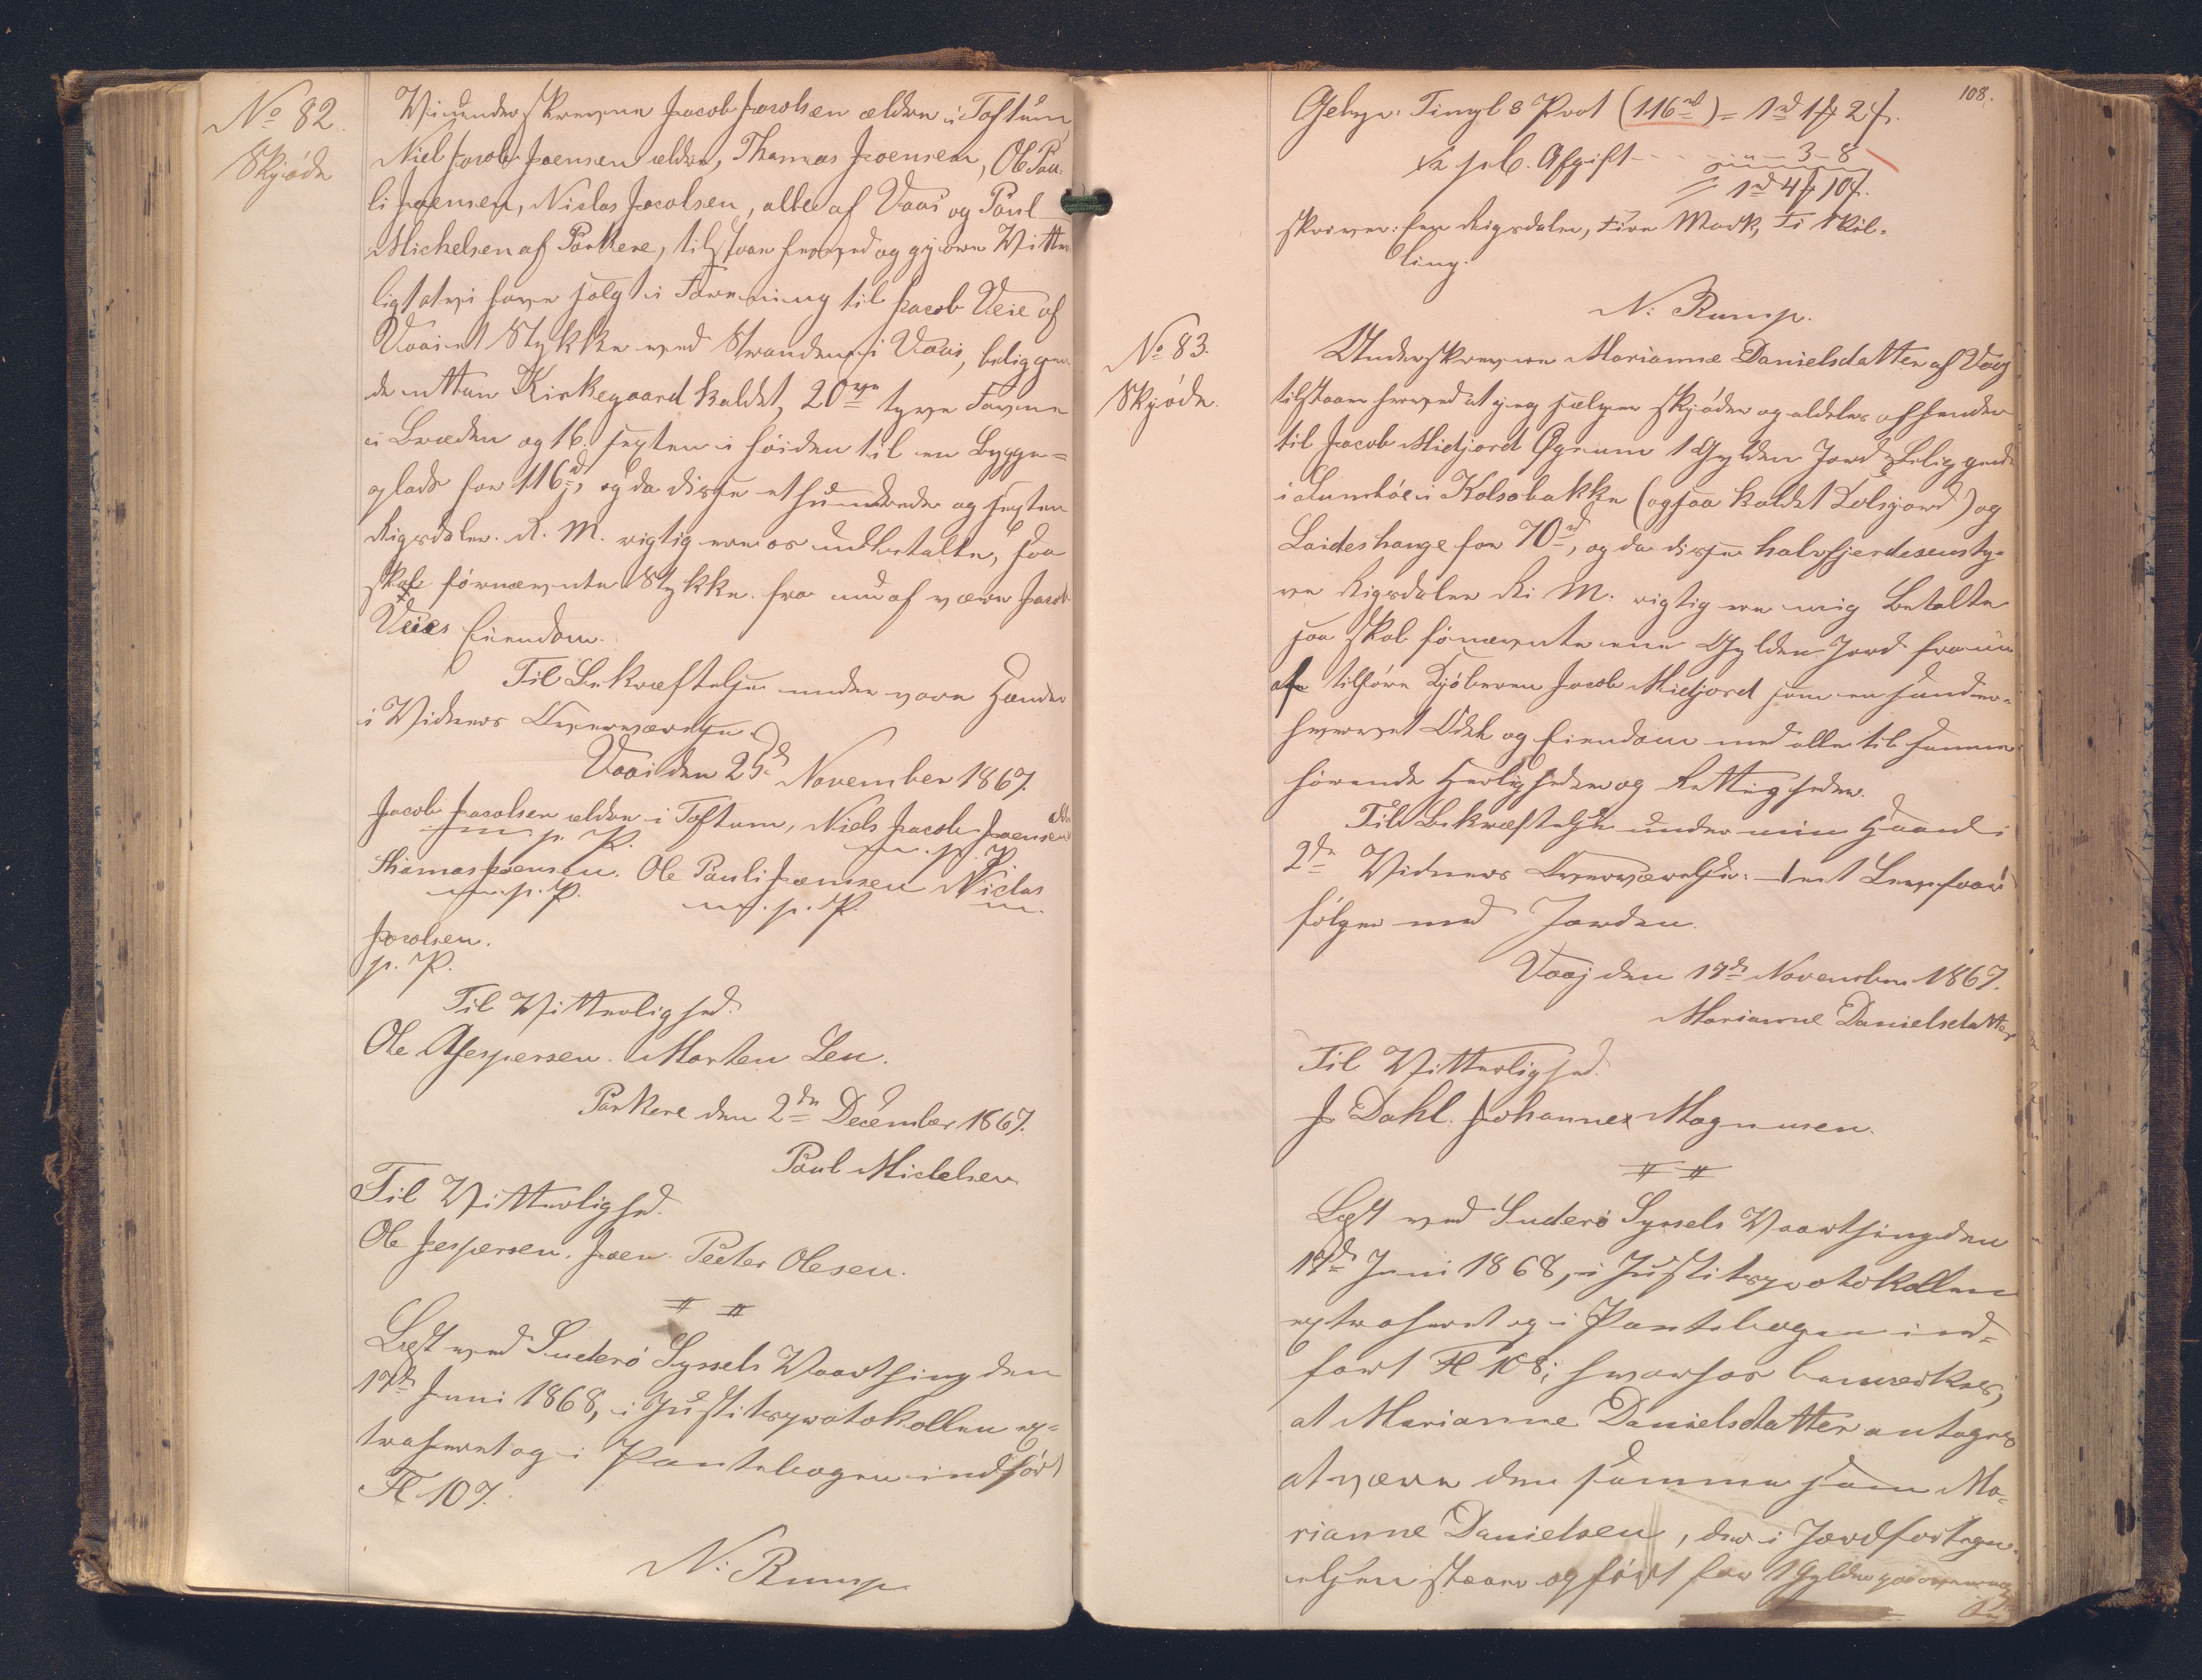 No 82.
Skjøde
Vi underskrevne Jacob Jacobsen ældre i Toftum,
Niels Jacob Joensen ældre, Thomas Joensen, Ole Pau-
li Joensen, Niclas Jacobsen, alle af Vaai og Poul
Michelsen af Porkere, tilstaar herved og gjøre Vitter-
ligt at vi have solgt i Forening til Jacob Veie af
Vaai et Stykke ved Stranden i Vaai, beliggen-
de Kirkegaard kaldet, 20ve tyve Favne
i Breden og 16. sexten i Høiden til en Bygge-
plads for 116rd, og da disse et hundrede og sexten
Rigsdaler R. M. rigtig ere os udbetalte, saa
skal førnævnte Stykke fra nu af være Jacob
Veies Eiendom.
Til Bekræftelse under vore Hænder
i Vidners Overværelse.
Vaai den 25de November 1867.
Jacob Jacobsen ældre i Toftum, Niels Jacob Joensen ældre
m. p. P. m. p. P.
Thomas Joensen. Ole Pauli Joensen Niclas
m. p. P. m. p. P. m.
Jacobsen.
p. P.
Til Vitterlighed.
Ole Jespersen. Morten Leu.
Porkere den 2den December 1867.
Poul Michelsen
Til Vitterlighed.
Ole Jespersen. Joen Peeter Olesen.
Læst ved Suderø Syssels Vaarthing den
17de Juni 1868, i Justitsprotokollen ex-
traheret og i Pantebogen indført
Fl 107.
N: Rump
108.
Gebyr: Tingl & Prot (116rd) = 1rd 1# 2ß.
½ pCt. Afgift - - " - 3 - 8
= 1rd 4# 10ß.
skriver: een Rigsdaler, fire Mark, ti Skil-
ling.
N: Rump.
No 83.
Skjøde.
Underskrevne Marianne Danielsdatter af Vaaj
tilstaar herved at jeg sælger skjøder og aldeles afhender
til Jacob Midjord Øgrum 1 Gylden Jord beliggende
i Sumbøe i Kolsobakke (ogsaa kaldet Kolsgaard) og
Laideshauge for 70rd, og da disse halvfjerdesensty-
ve Rigsdaler Ri M. rigtig ere mig betalte
saa skal førnævnte ene Gylden Jord fra nu
af tilhøre Kjøberen Jacob Midjord som en sand er-
hvervet Odel og Eiendom med alle til samme
hørende Herligheder og Rettigheder.
Til Bekræftelse under min Haand i
2de Vidners Overværelse. 1 et Lev saar
følger med Jorden.
Vaaj den 17de November 1867.
Marianne Danielsdatter
Til Vitterlighed.
J Dahl. Johannes Magnusen.
Læst ved Suderø Syssels Vaarthing den
17de Juni 1868, i Justitsprotokollen
extraheret og i Pantebogen ind-
ført Fl 108; hvorhos bemærkes,
at Marianne Danielsdatter antages
at være den samme som Ma-
rianne Danielsen, der i Jordfortegn-
elsen staar opført for 1 Gylden